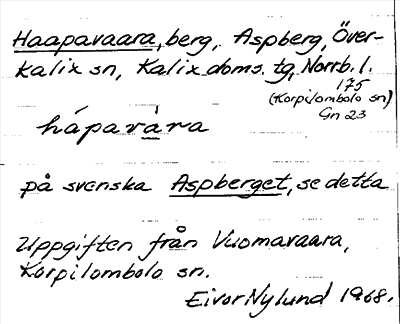 Haapavaara, berg, Aspberg, Över-
kalix sn, Kalix doms. tg, Norrb. l.
175
(Korpilombolo sn)
Gn 23
hápavàra
på svenska Aspberget, se detta
Uppgiften från Vuomavaara,
Korpilombolo sn.
Eivor Nylund 1968.